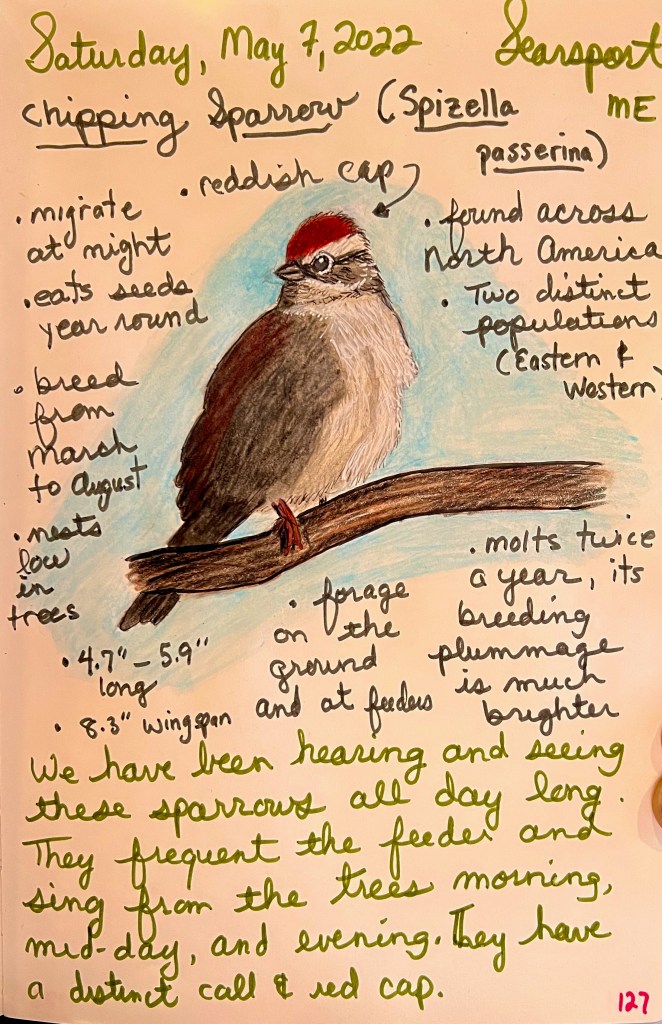 Saturday, May 7, 2022 Searsport
ME
Chipping Sparrow (Spizella
passerina)
• reddish cap
• migrate
at night
• eats seeds
year round
• breed
from
march
to August
• nests
low
in
trees
• found across
North America
• Two distinct
populations
(Eastern &
Western)
• 4.7" – 5.9"
long
• 8.3" wingspan
• forage
on the
ground
and at feeders
• molts twice
a year, its
breeding
plummage
is much
brighter
We have been hearing and seeing
these sparrows all day long.
They frequent the feeder and
sing from the trees morning,
mid-day, and evening. They have
a distinct call & red cap.
127